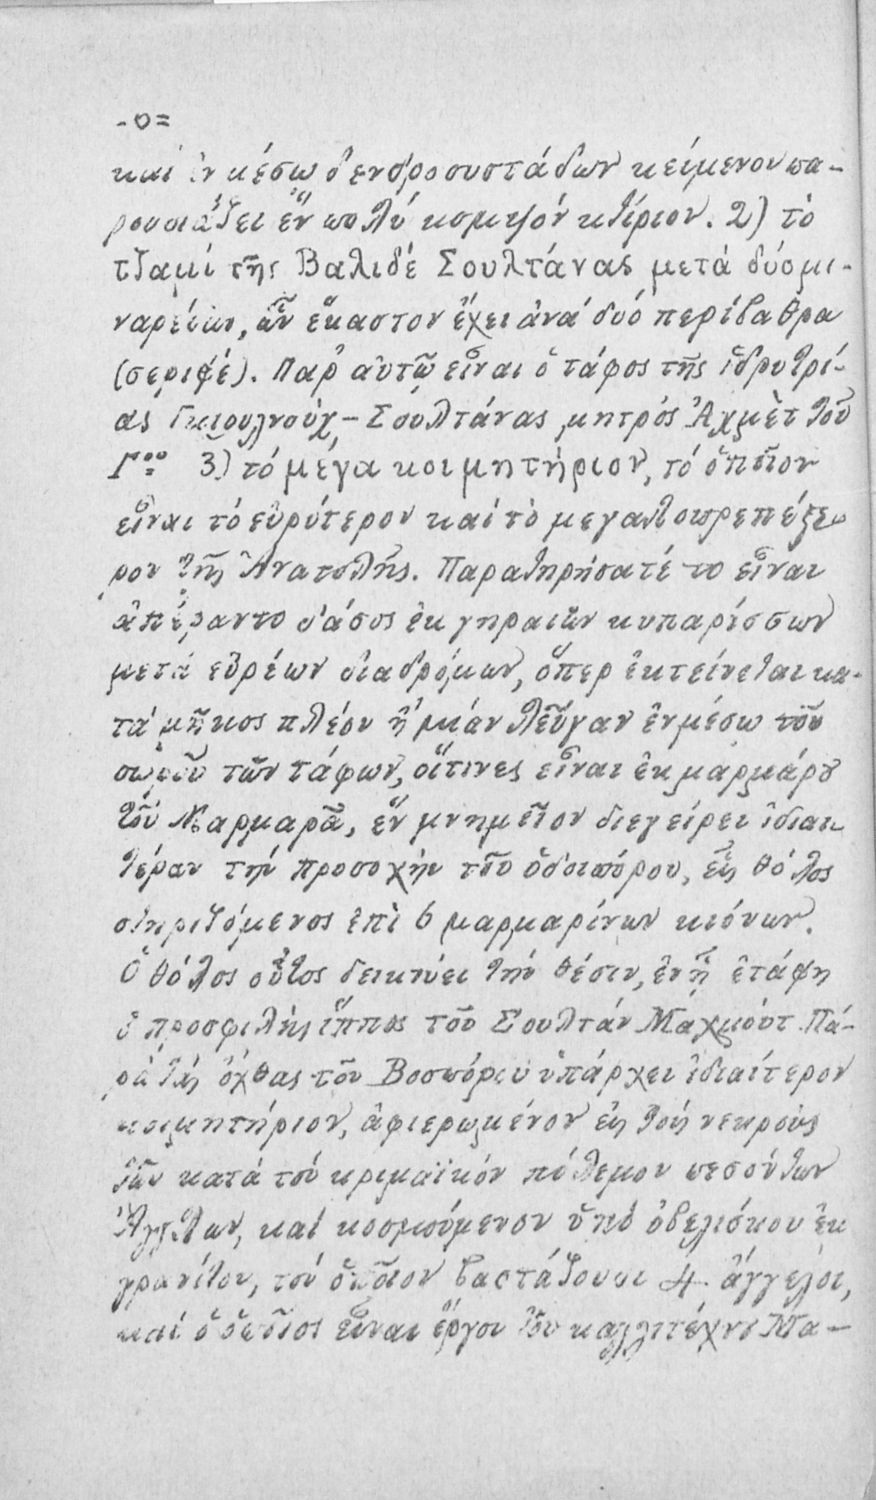 -0=
καὶ ἐν μέσω δενδροσυστάδων κείμενον πα-
ρουσιάζει ἕν πολύ κομψόν κτίριον. 2) τὸ
τζαμί τῆς Βαλιδέ Σουλτάνας μετά δύο μι-
ναρέδων, ὧν ἕκαστον ἔχει ἀνά δυό περίβαθρα
(σεριφέ). Παρ' αὐτῶ εἶναι ὁ τάφος τῆς ἱδρυτρί-
ας Γκιουλνούχ-Σουλτάνας μητρός Ἀχμὲτ τοῦ
Γου 3) τό μέγα κοιμητήριον, τό ὁποῖον
εἶναι τό εὐρύτερον καί τὸ μεγαλοπρεπέστε
ρον τῆς Ἀνατολῆς. Παρατηρήσατέ το εἶναι
ἀπέραντο δάσος ἐκ γηραιῶν κυπαρίσσων
μετά εὐρέων διαδρόμων, ὅπερ ἐκτείνεται κα-
τά μῆκος πλέον ἤ μιάν λεῦγαν ἐν μέσω τοῦ
σωροῦ τῶν τάφων, οἵτινες εἶναι ἐκ μαρμάρου
τοῦ Μαρμαρᾶ, ἕν μνημεῖον διεγείρει ἰδιαι
τέραν τήν προσοχήν τοῦ ὁδοιπόρου, εἷς θόλος
στηριζόμενος ἐπὶ 6 μαρμαρίνων κιόνων.
Ὁ θόλος οὗτος δεικνύει τήν θέσιν, ἐν ᾗ ἐτάφη
ὁ προσφιλής ἵππος τοῦ Σουλτάν Μαχμούτ. Πα-
ρά τάς ὄχθας τοῦ Βοσπόρου ὑπάρχει ἰδιαίτερον
κοιμητήριον, ἀφιερωμένον εἰς τούς νεκρούς
τῶν κατά τόν κριμαϊκόν πόλεμον πεσόντων
Ἄγγλων, καί κοσμούμενον ὑπό ὀβελίσκου ἐκ
γρανίτου, τόν ὁποῖον βαστάζουσι 4 ἄγγελοι,
καί ὁ ὁποῖος εἶναι ἔργον τοῦ καλλιτέχνου Μα-